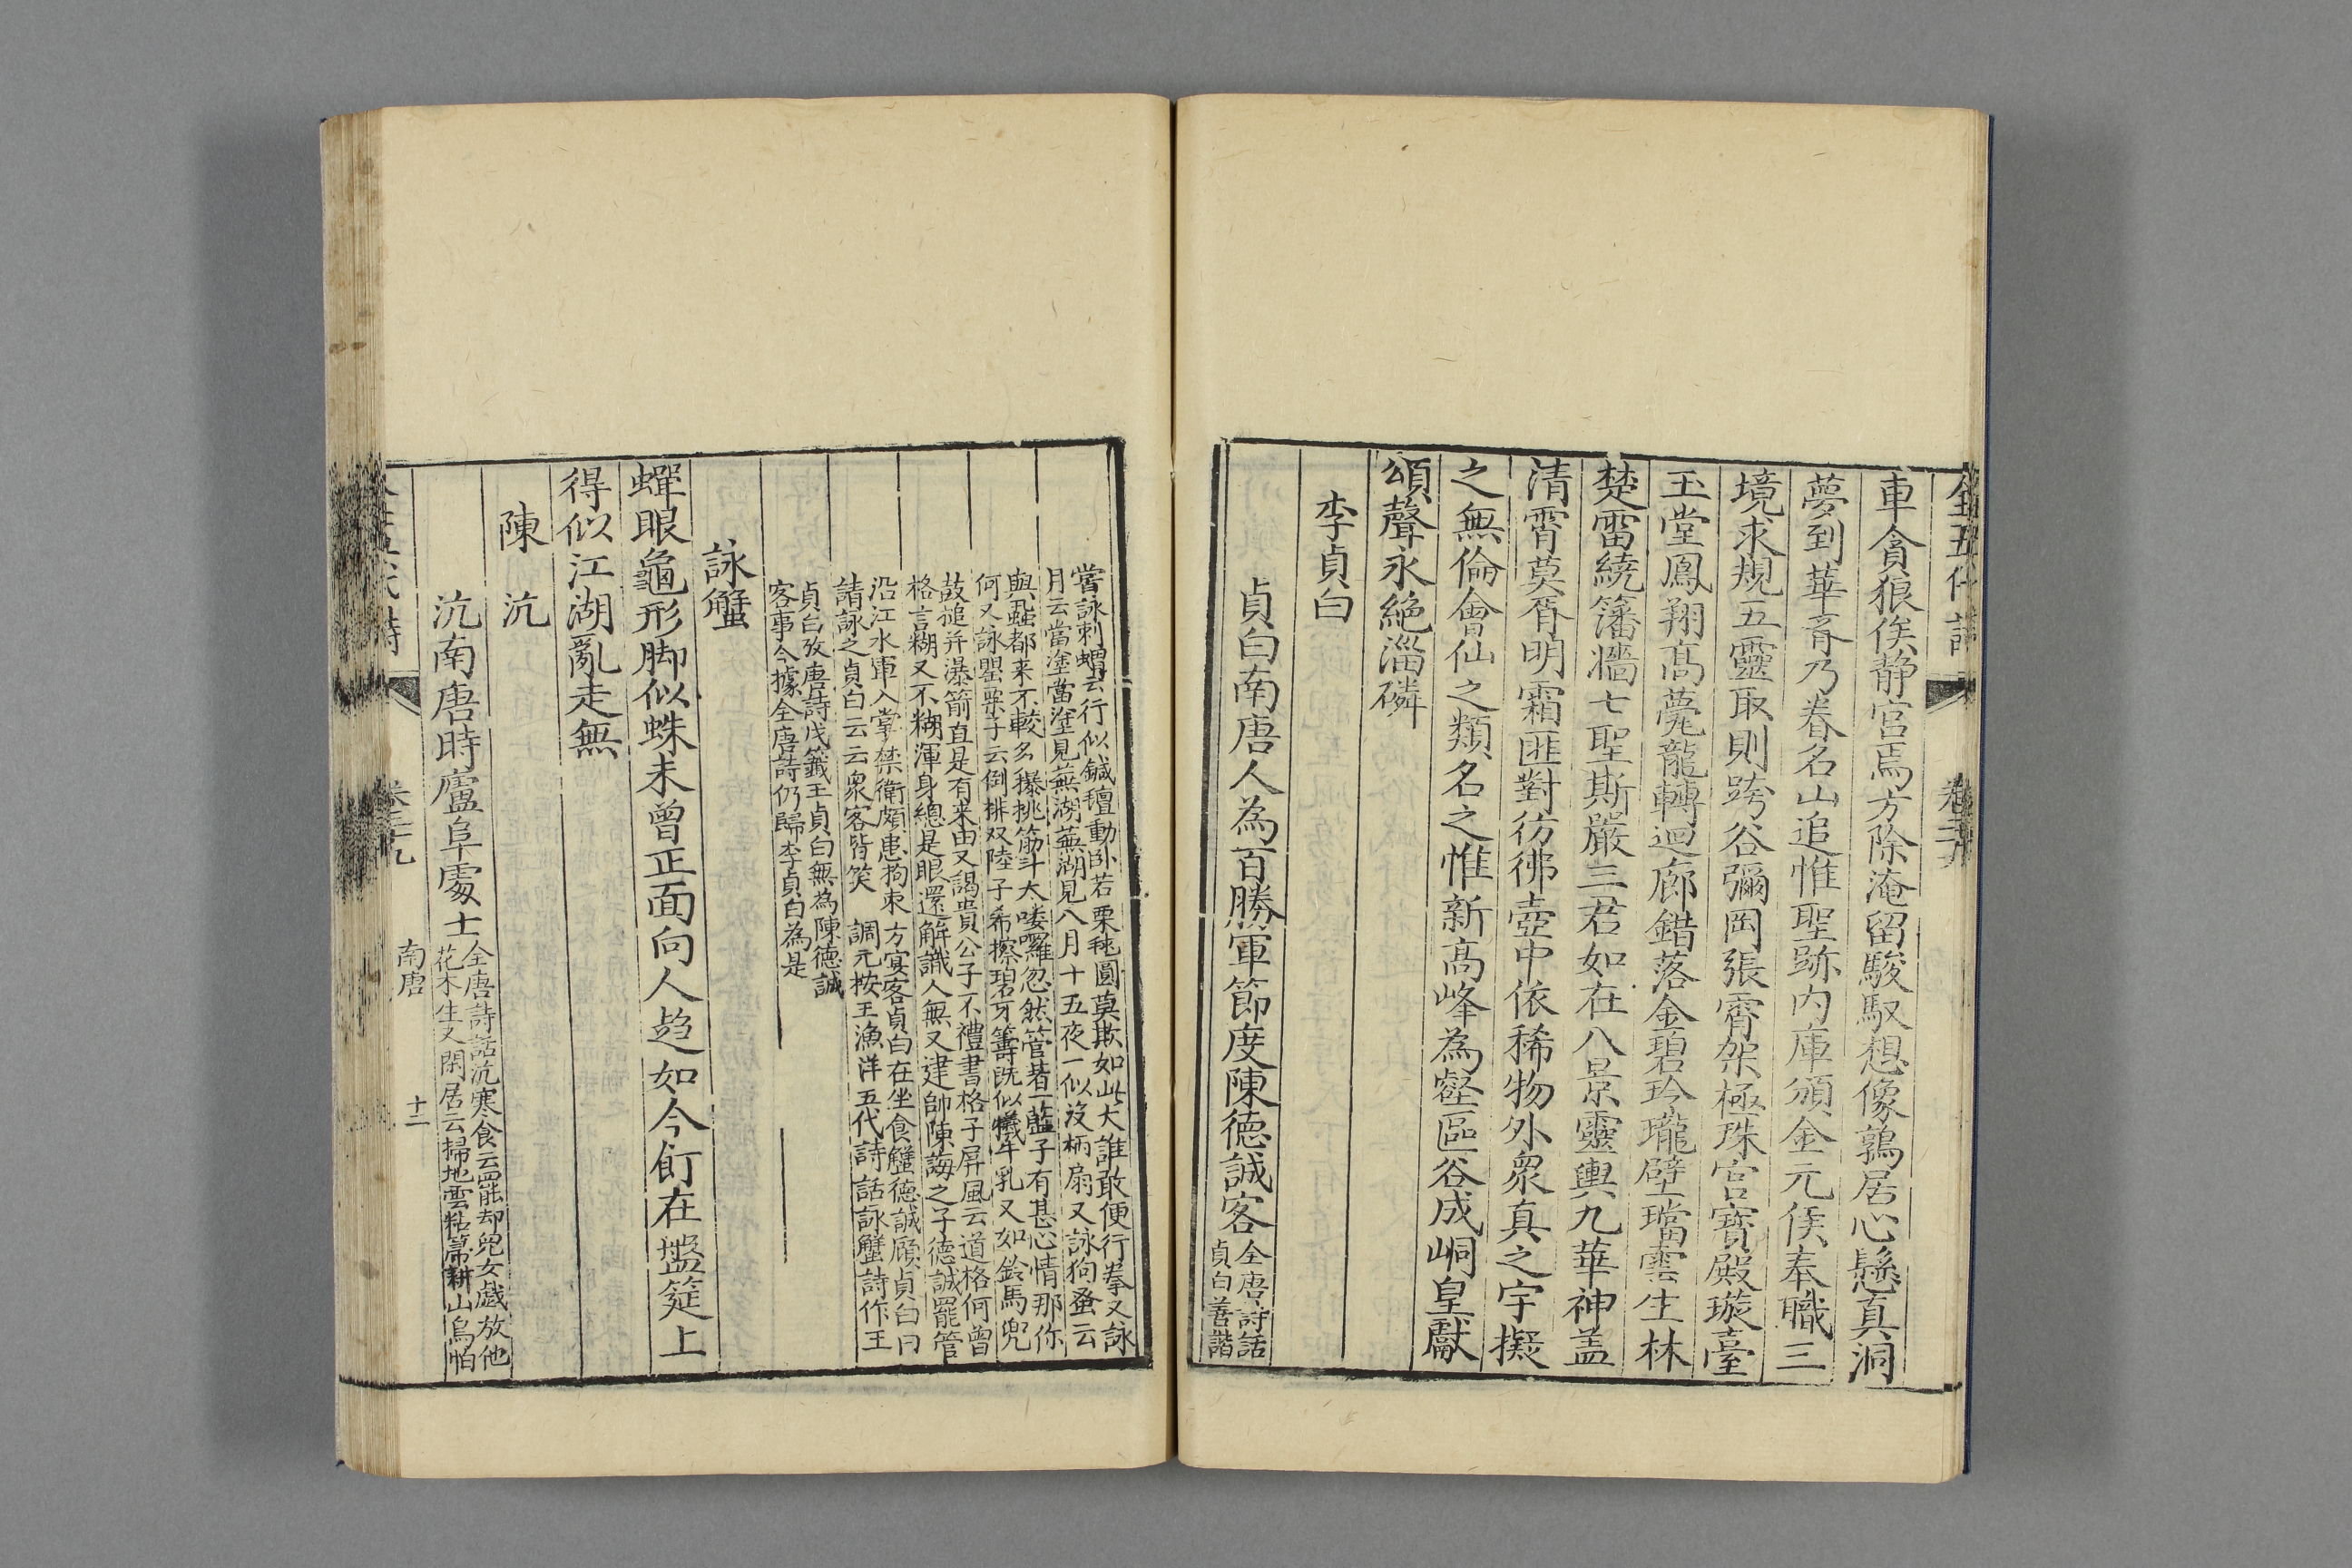 全五代詩
卷三十九
車貪狼俟静宮焉方除淹留駿馭想像鶉居心懸真洞
夢到華胥乃眷名山追惟聖跡内庫頒金元侯奉職三
境求規五靈取則跨谷彌岡張霄架極珠宮寳殿璇臺
玉堂鳳翔髙甍龍轉迴廊錯落金碧玲瓏壁璫雲生林
楚雷繞籓墻七聖斯嚴三君如在八景靈輿九華神盖
清霄莫胥明霜匪對彷彿壺中依稀物外衆真之宇擬
之無倫會仙之類名之惟新髙峰為壑區谷成峒皇獻
頌聲永絶淄磷
李貞白
貞白南唐人為百勝軍節度陳德誠客
全唐詩話
貞白善諧
嘗詠刺蝟云行似鍼氊動卧若栗毬圓莫欺如此大誰敢便行拳又詠
月云當塗當塗見蕪湖蕪湖見八月十五夜一似没柄扇又詠狗蚤云
與蝨都来不較多㩧挑筋斗太嘍囉忽然管著一籃子有甚心情那你
何又詠罌粟子云倒排双陸子希擦碧牙籌既似犧牛乳又如鈴馬兜
鼓搥并瀑箭直是有来由又謁貴公子不禮書格子屏風云道格何曾
格言糊又不糊渾身總是眼還解識人無又建帥陳誨之子德誠罷管
沿江水軍入掌禁衛頗患拘束 方宴客貞白在坐食蟹德誠顧貞白曰
請詠之貞白云云衆客皆笑 調元按王漁洋五代詩話詠蟹詩作王
貞白攷唐詩戊籤王貞白無為陳德誠
客事今據全唐詩仍歸李貞白為是
詠蟹
蟬眼龜形脚似蛛未曾正面向人趋如今飣在盤筵上
得似江湖亂走無
陳沆
沆南唐時廬阜處士
全唐詩話沆寒食云罷却兒女戯放他
花木生又閑居云掃地雲粘箒耕山鳥怕
南唐
十二
卷三十九